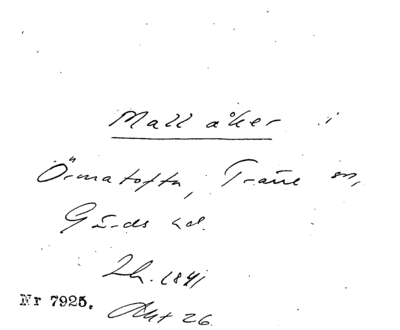 Mall åker i
Örmatofta, Träne sn,
Gärds hd.
Lh. 1841
Nr 7925. Akt 26.